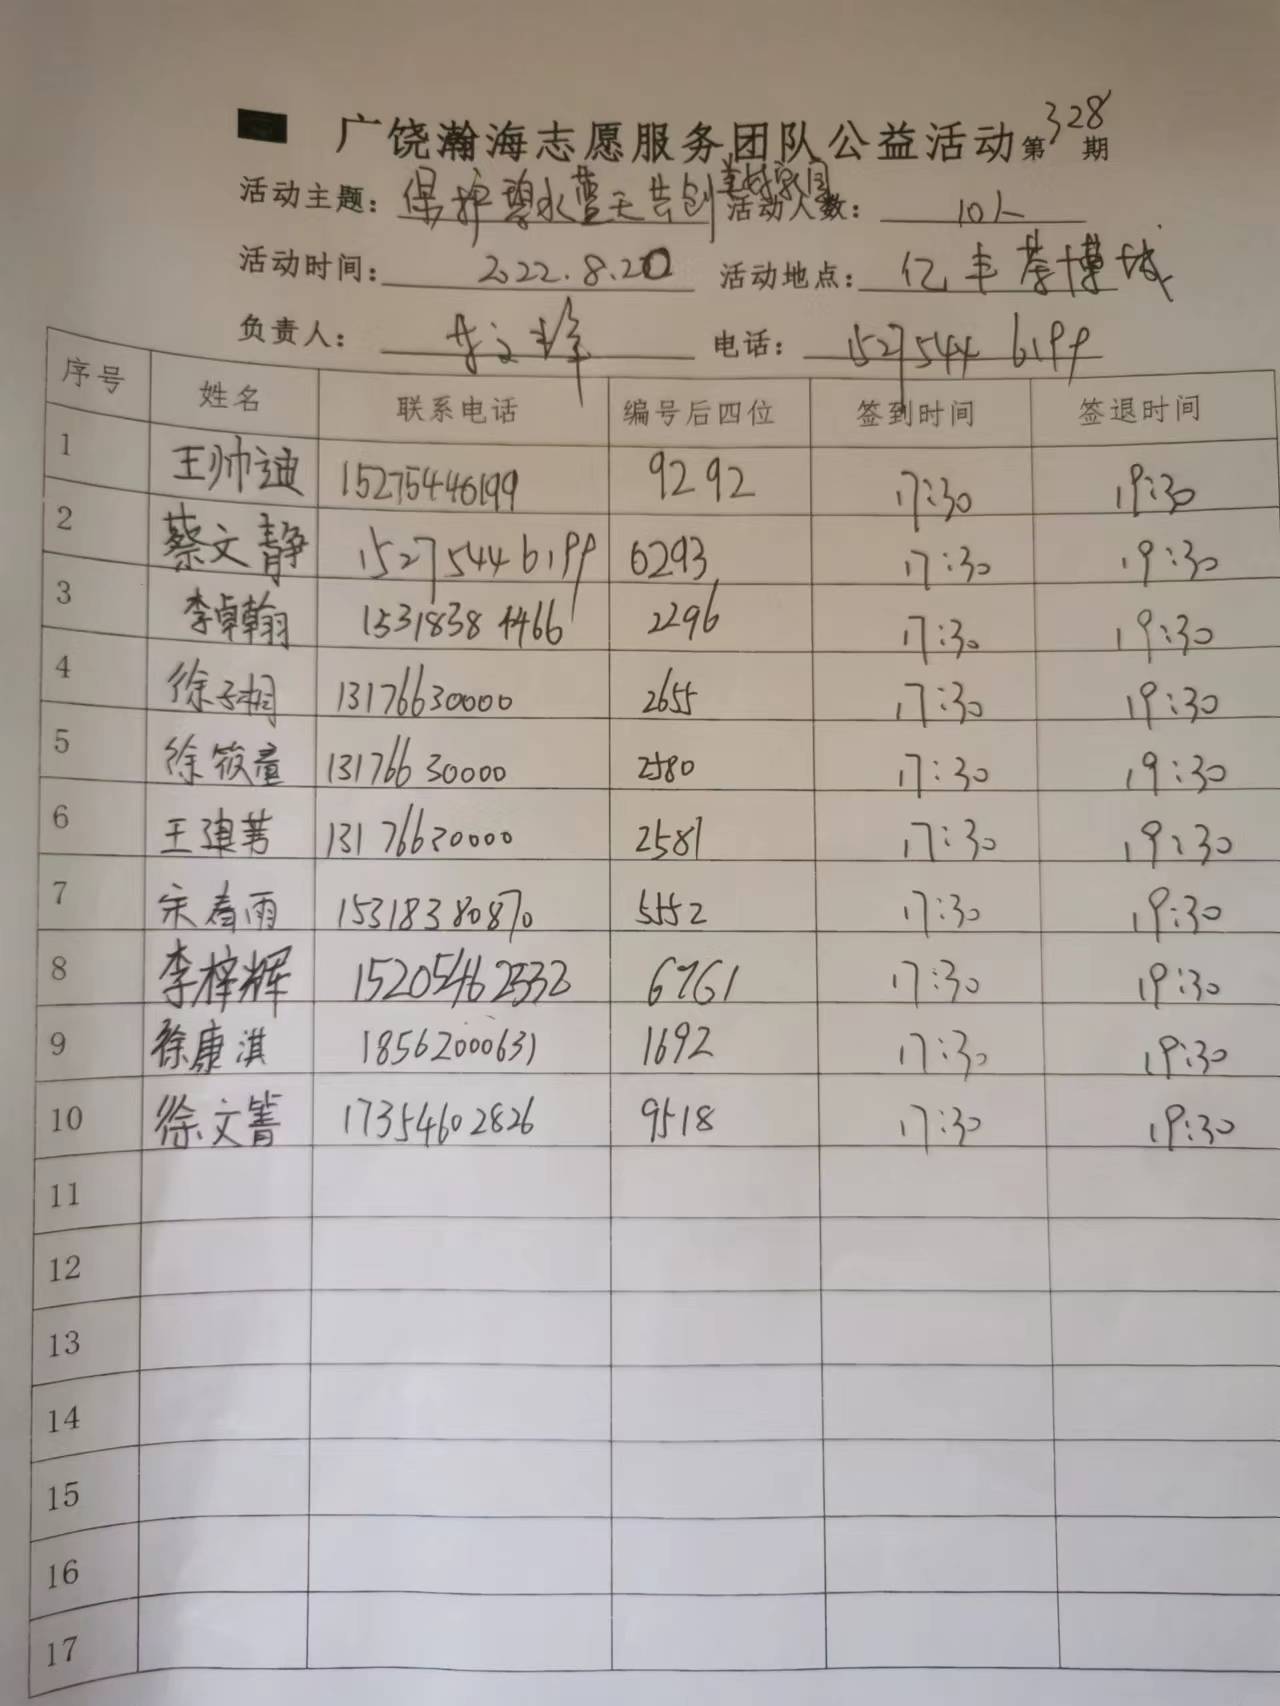 广饶瀚海志愿服务团队公益活动第328期
活动主题：保护碧水蓝天共创美好家园 活动人数：10人
活动时间：2022.8.20 活动地点：亿丰茶博城
负责人： 电话：15275446199
序号 姓名 联系电话 编号后四位 签到时间 签退时间
1 王帅迪 15275446199 9292 17:30 19:30
2 蔡文静 15275446199 6293 17:30 19:30
3 李卓翰 15318384466 2296 17:30 19:30
4 徐子桐 13176630000 2655 17:30 19:30
5 徐筱童 13176630000 2580 17:30 19:30
6 王建芳 13176630000 2581 17:30 19:30
7 宋春雨 15318380870 5552 17:30 19:30
8 李梓辉 15205462532 6761 17:30 19:30
9 徐康淇 18562000631 1692 17:30 19:30
10 徐文箐 17354602826 9518 17:30 19:30
11
12
13
14
15
16
17